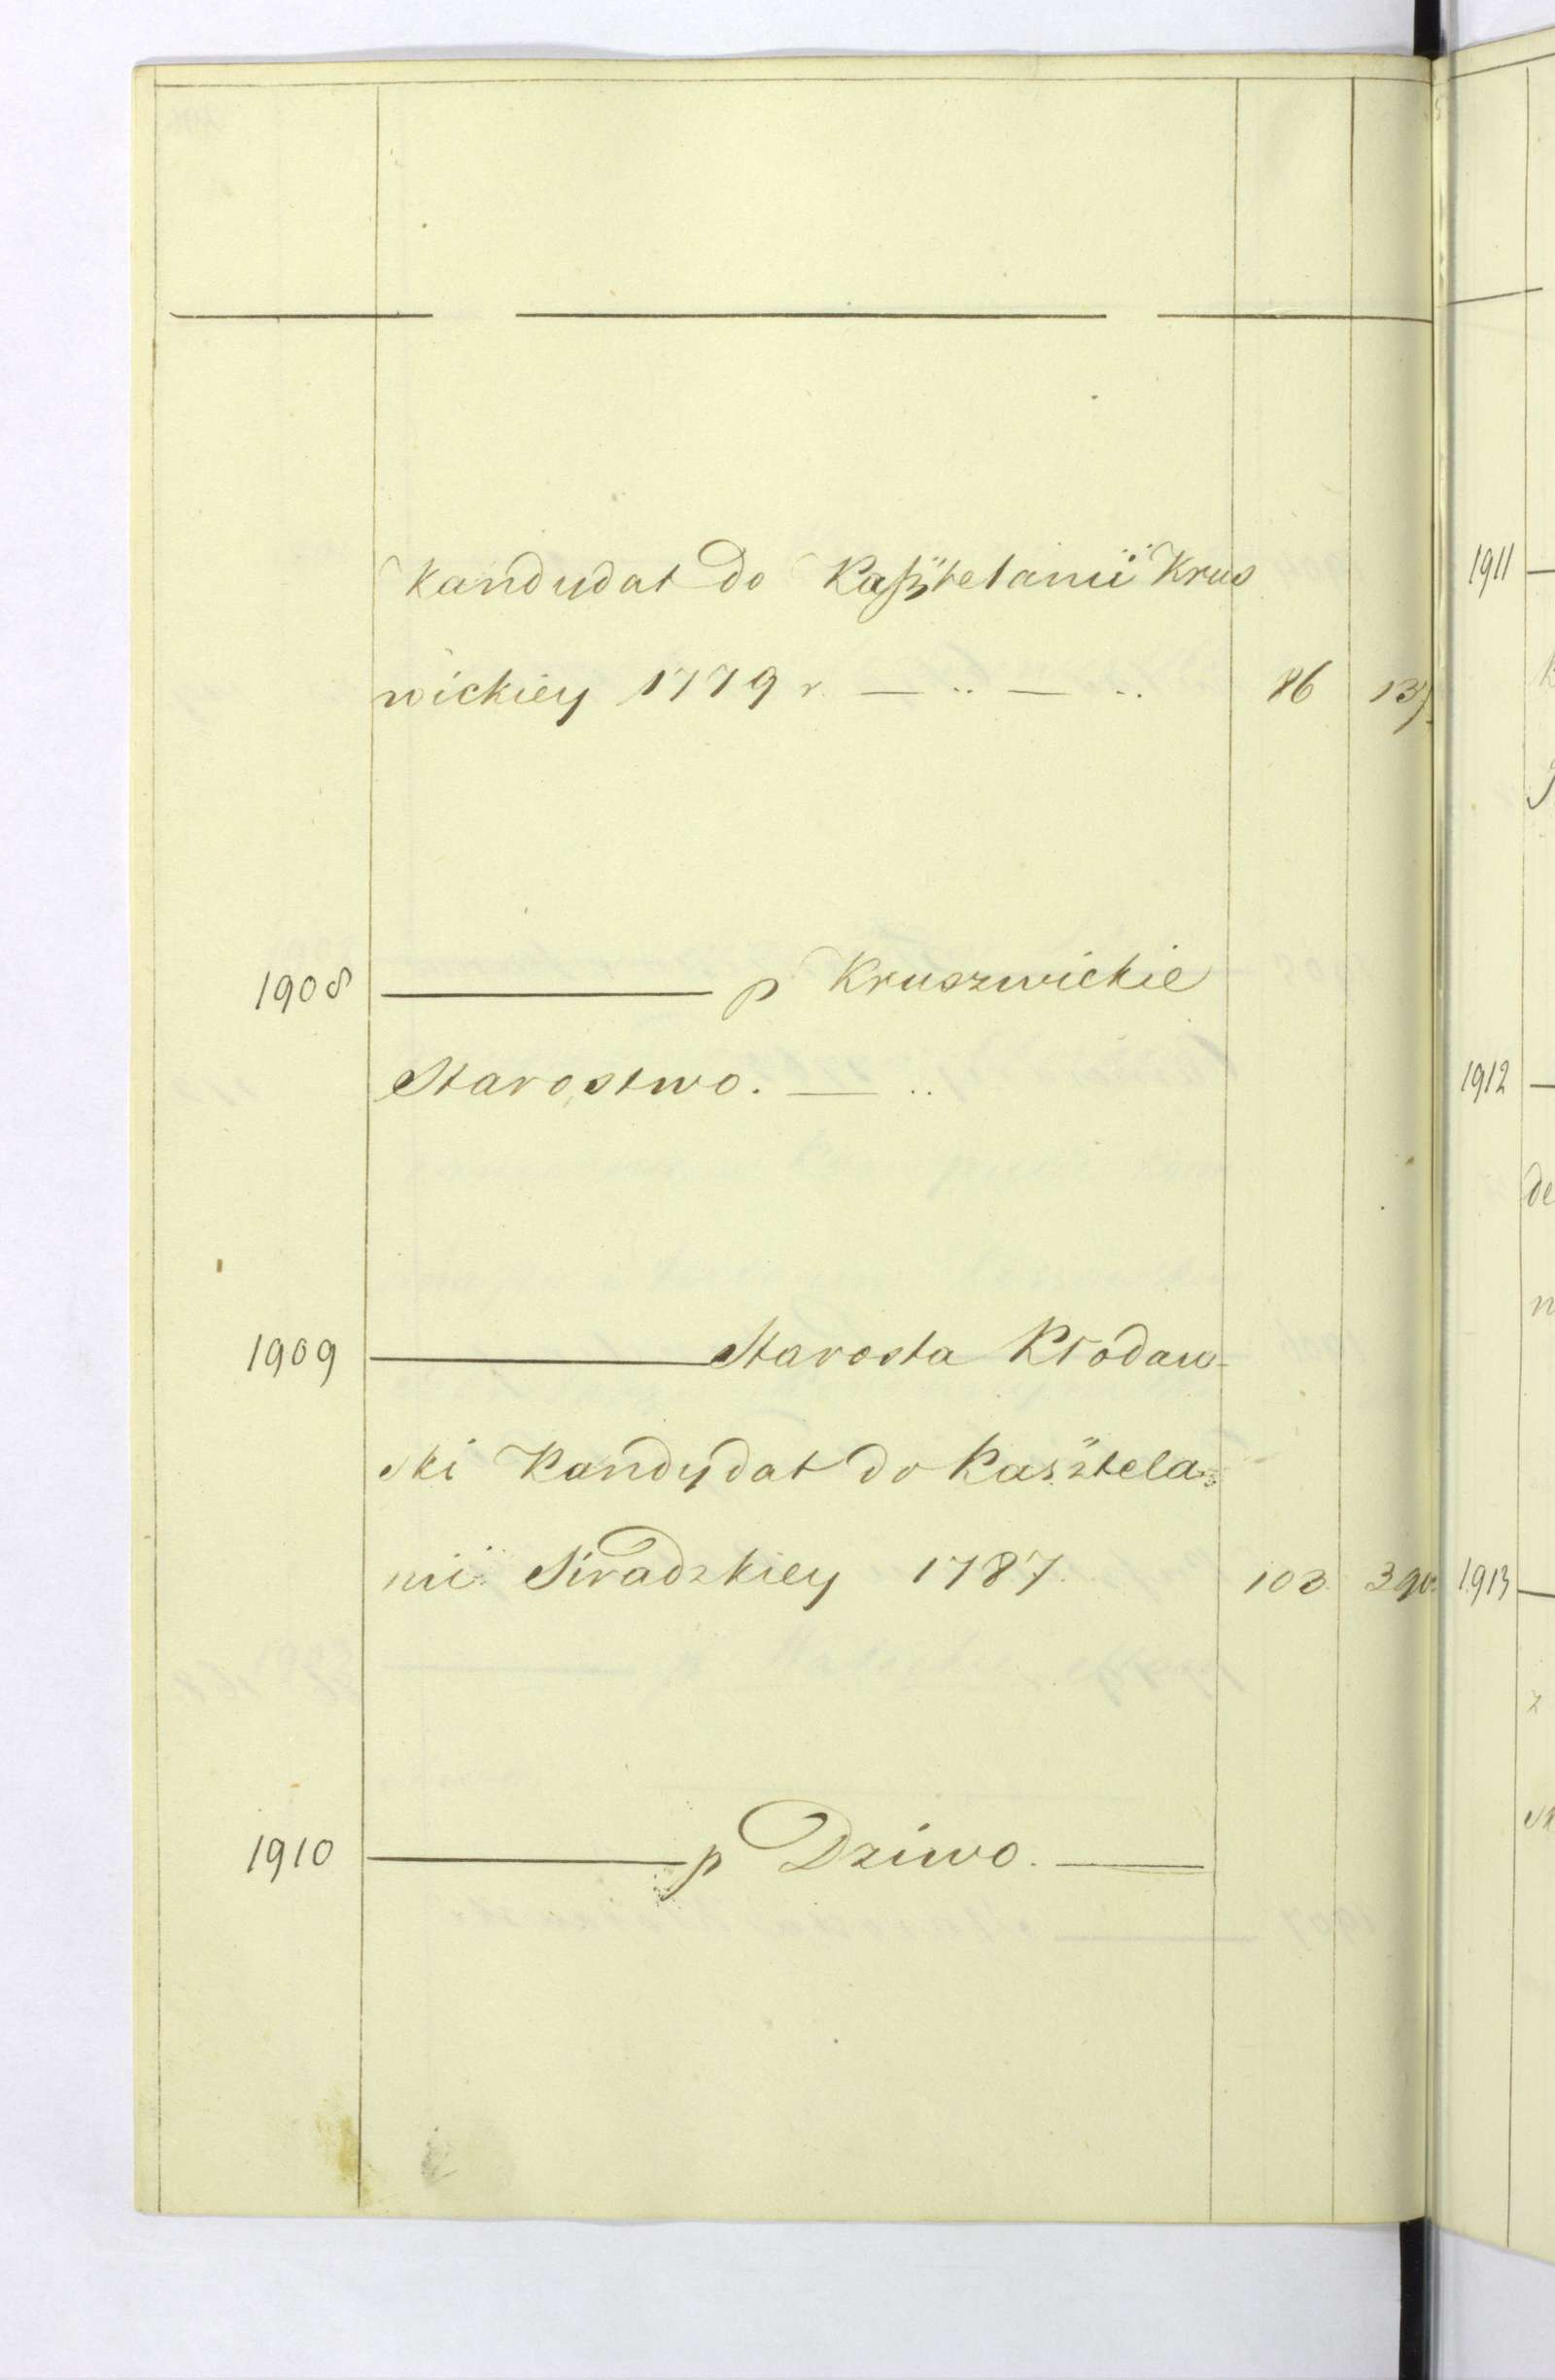 Kandydat do Kasztelanii Krus
wickiey 1779 r. — .. — .. 86 137.
1908 ——— p Kruszwickie
Starostwo. — ..
1909 ——— Starosta Kłodaw-
ski Kandydat do Kasztela-
nii Siradzkiey 1787. 103. 390.
1910 ——— p Dziwo. ———
1911
1912
de
1913